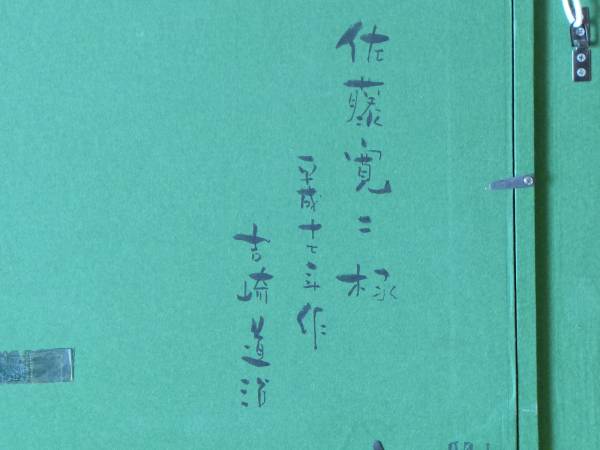 佐藤寛二様
平成十七年作
吉崎道治